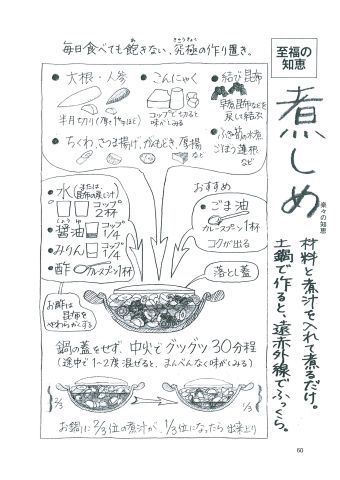 毎日食べても飽きない、究極の作り置き。
至福の
知恵
煮しめ
楽々の知恵
材料と煮汁を入れて煮るだけ。
土鍋で作ると、遠赤外線でふっくら。
●大根・人参
半月切り(厚さ
●こんにゃく
コップで切ると
味がしみる
●結び昆布
早煮昆布などを
戻して結ぶ
水煮
ごぼう 蓮根
など
●ちくわ、さつま揚げ、がんもどき、厚揚
など
●水(または、昆布の戻し汁)
コップ
2杯
●醤油 コップ
1/4
●みりん コップ
1/4
●酢 カレースプーン1杯
お酢は
昆布を
やわらかくする
おすすめ
●ごま油
カレースプーン1杯
コクが出る
落とし蓋
鍋の蓋をせず、中火でグツグツ30分程
(途中で1~2度混ぜると、まんべんなく味がしみる)
2/3
1/3
お鍋に2/3位の煮汁が、1/3位になったら出来上り
60